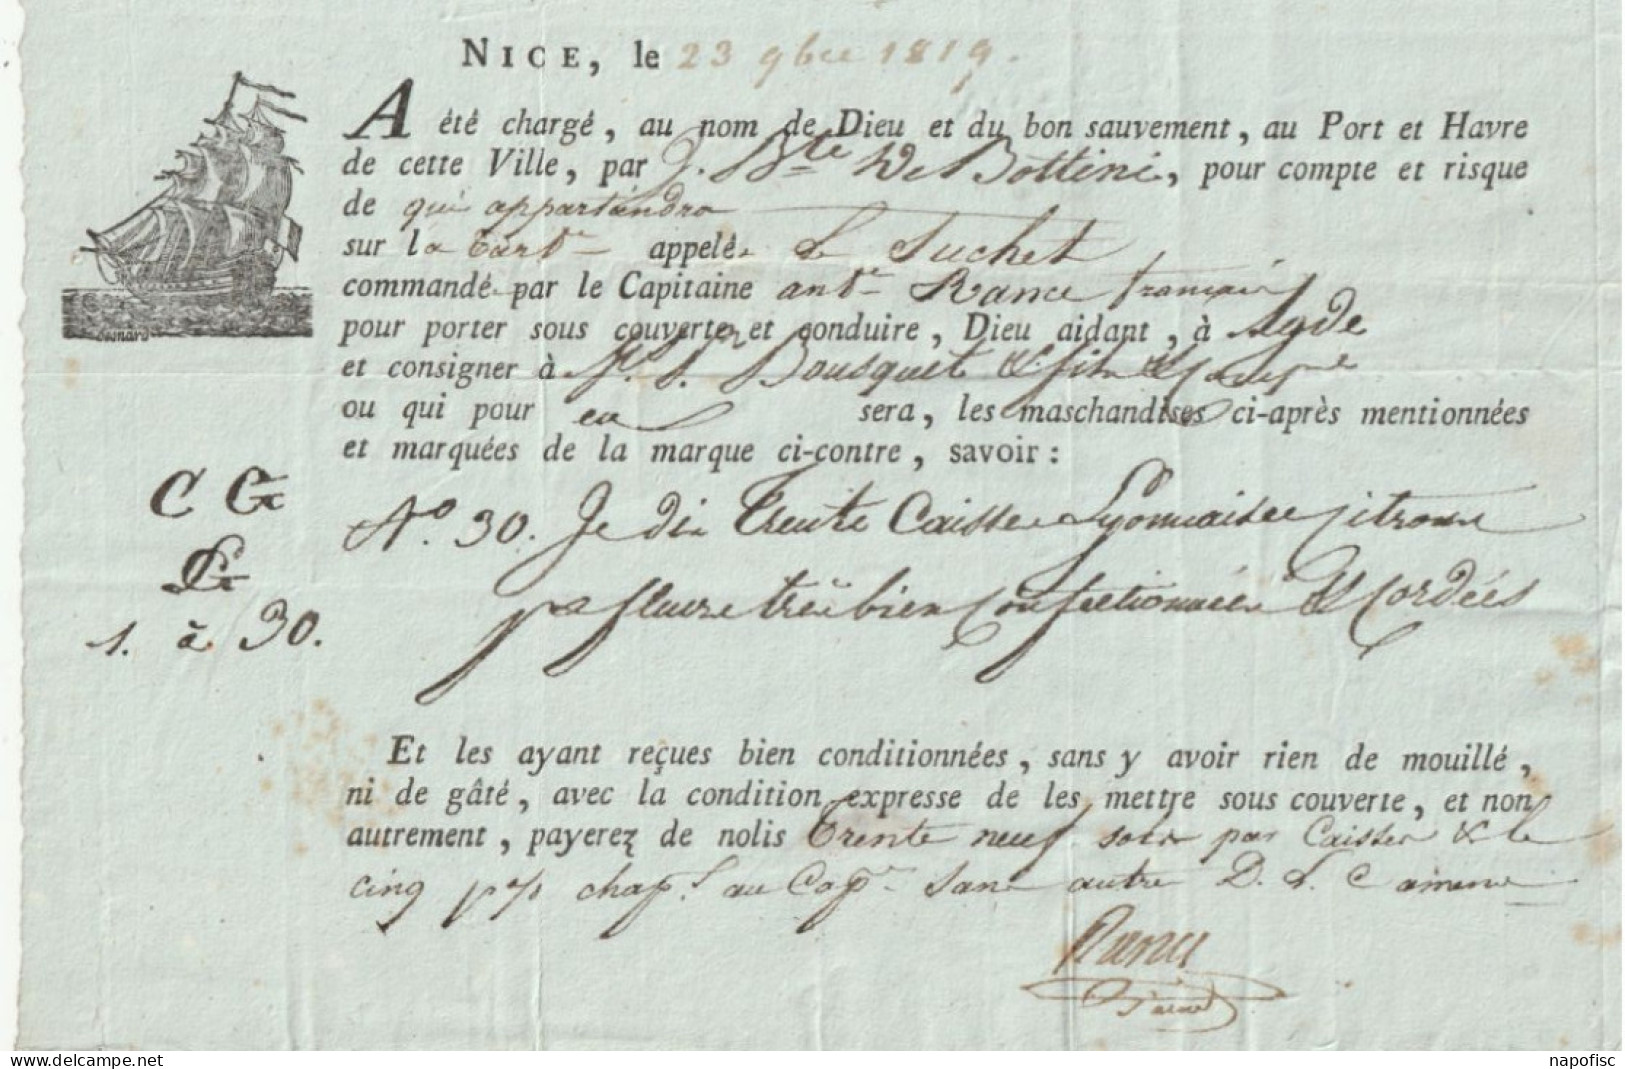 NICE, le 23 9bre 1819.
A été chargé, au nom de Dieu et du bon sauvement, au Port et Havre
de cette Ville, par J. Bte De Bottini, pour compte et risque
de qui appartiendra
sur la Tart.e appelé Le Suchet
commandé par le Capitaine ant.e Rance français
pour porter sous couverte et conduire, Dieu aidant, à Agde
et consigner à Mr. P. Bousquet & fils &
ou qui pour eux sera, les maschandises ci-après mentionnées
et marquées de la marque ci-contre, savoir :
C G
N.o 30. Je dis Trente Caisses Lyonnaises Citrons
G
1. à 30.
très bien Confectionnées & Cordées
Et les ayant reçues bien conditionnées, sans y avoir rien de mouillé,
ni de gâté, avec la condition expresse de les mettre sous couverte, et non
autrement, payerez de nolis Trente neuf sols par Caisses & le
cinq p% chap.u au Cap.e sans autre D. L. C amene
Rance
Besnard
napofisc
delcampe.net